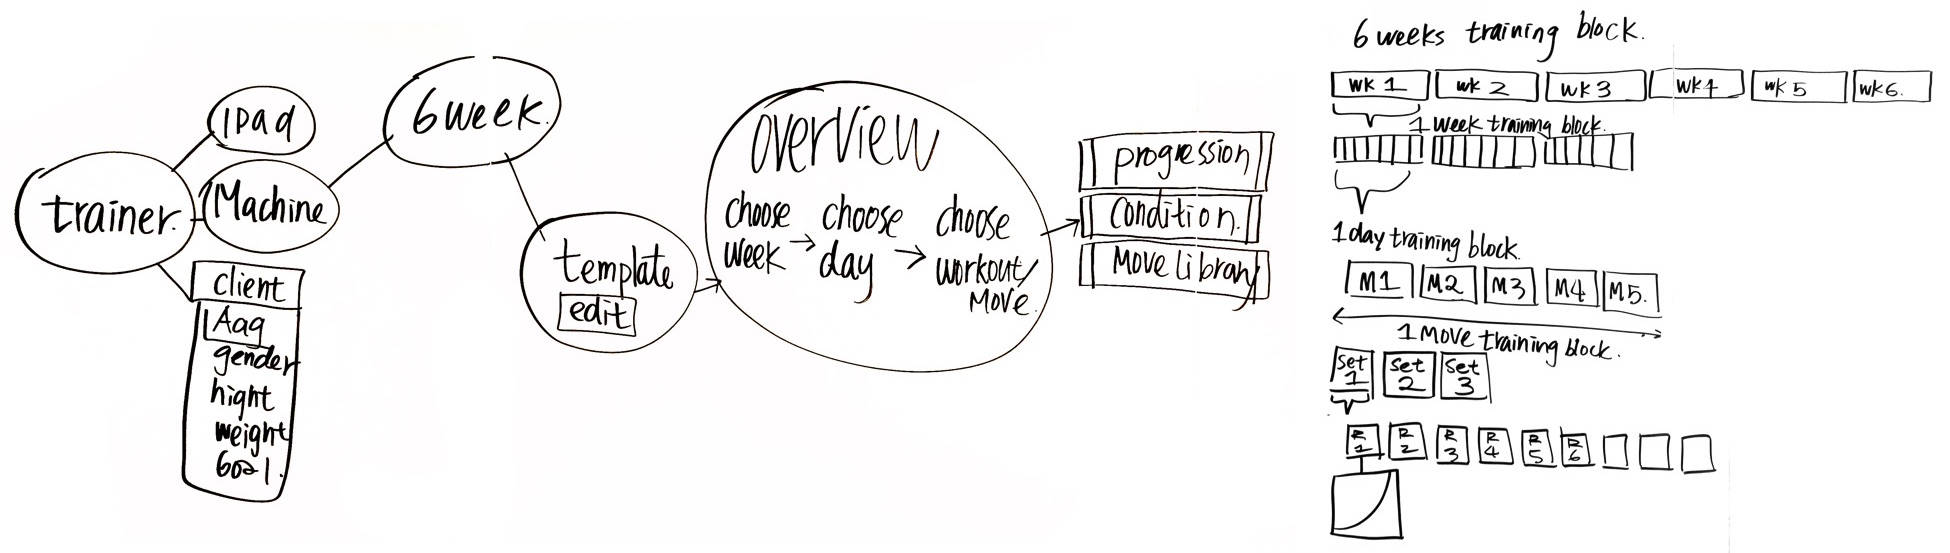 trainer.
ipad
Machine
client
Aag
gender
hight
weight
Goal.
6 week.
template
edit
overview
choose week → choose day → choose workout/Move.
progression
condition.
Move Library
6 weeks training block.
wk 1 wk 2 wk 3 wk 4 wk 5 wk 6.
1 week training block.
1 day training block.
M1 M2 M3 M4 M5.
1 Move training block.
set 1 set 2 set 3
R1 R2 R3 R4 R5 R6